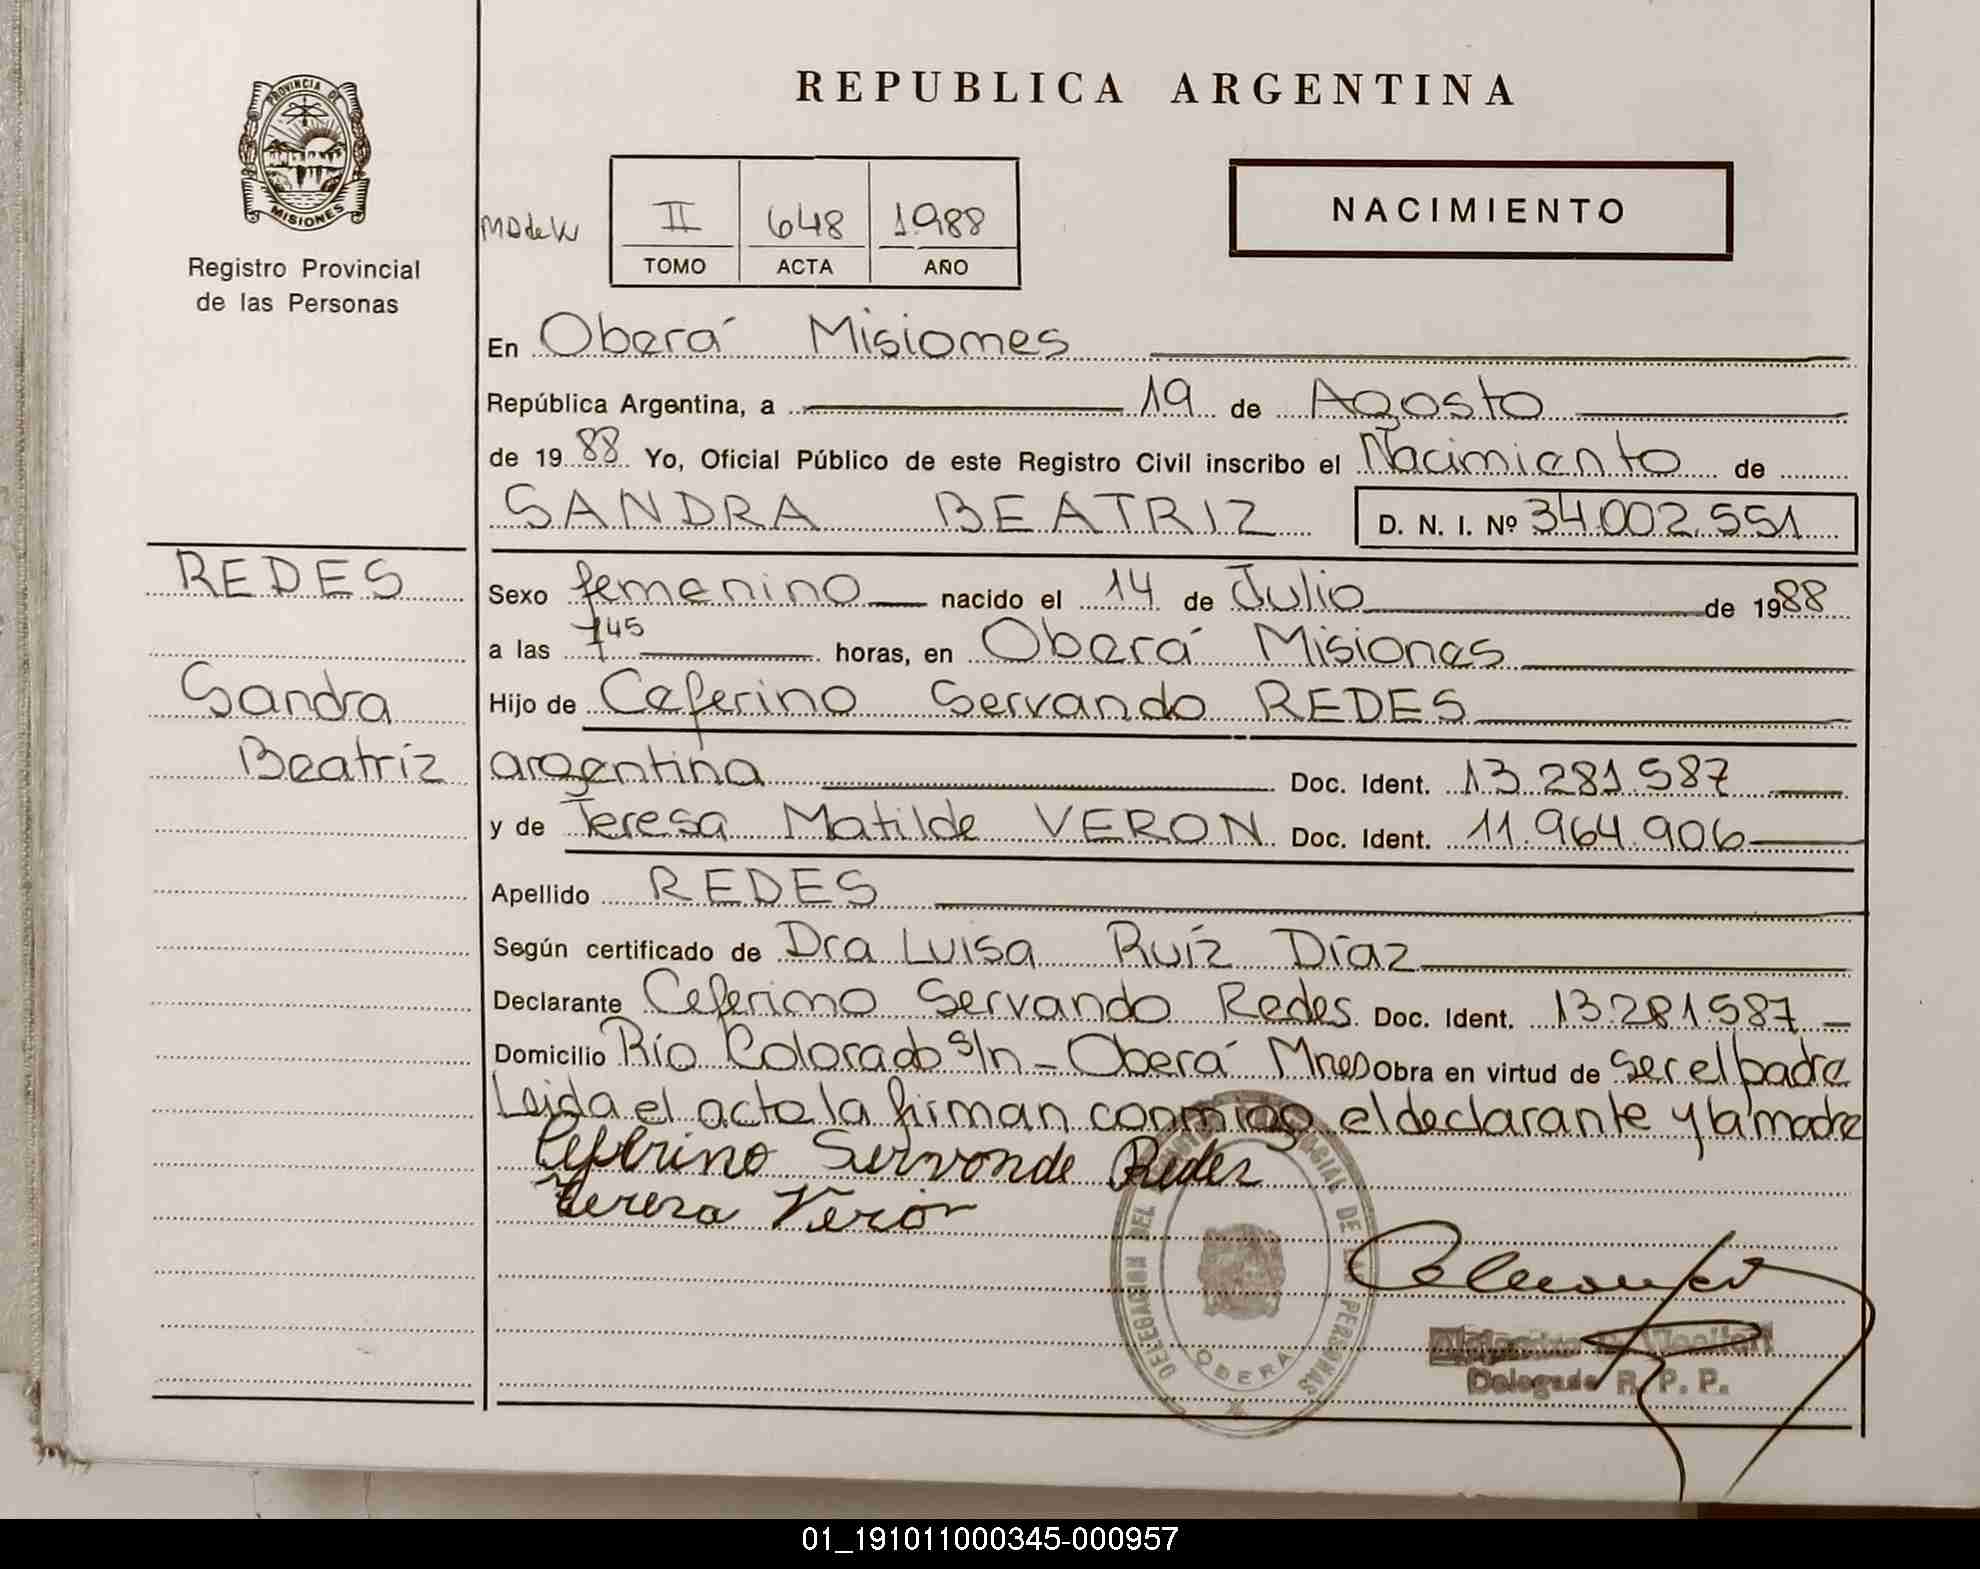 REPUBLICA ARGENTINA
PROVINCIA DE
MISIONES
Registro Provincial
de las Personas
II 648 1988
TOMO ACTA AÑO
NACIMIENTO
En Oberá Misiones
República Argentina, a 19 de Agosto
de 1988 Yo, Oficial Público de este Registro Civil inscribo el Nacimiento de
SANDRA BEATRIZ D. N. I. Nº 34.002.551
REDES
Sandra
Beatriz
Sexo femenino nacido el 14 de Julio de 1988
a las 7 45 horas, en Oberá Misiones
Hijo de Ceferino Servando REDES
argentina Doc. Ident. 13.281.587
y de Teresa Matilde VERON Doc. Ident. 11.964.906
Apellido REDES
Según certificado de Dra Luisa Ruíz Díaz
Declarante Ceferino Servando Redes Doc. Ident. 13281587
Domicilio Río Colorado s/n - Oberá Mnes Obra en virtud de ser el padre
Leida el acta la firman conmigo el declarante y la madre
Ceferino Servando Redes
Teresa Veron
DELEGACION DEL REGISTRO PROVINCIAL DE LAS PERSONAS
OBERA
Delegado R. P. P.
01_191011000345-000957